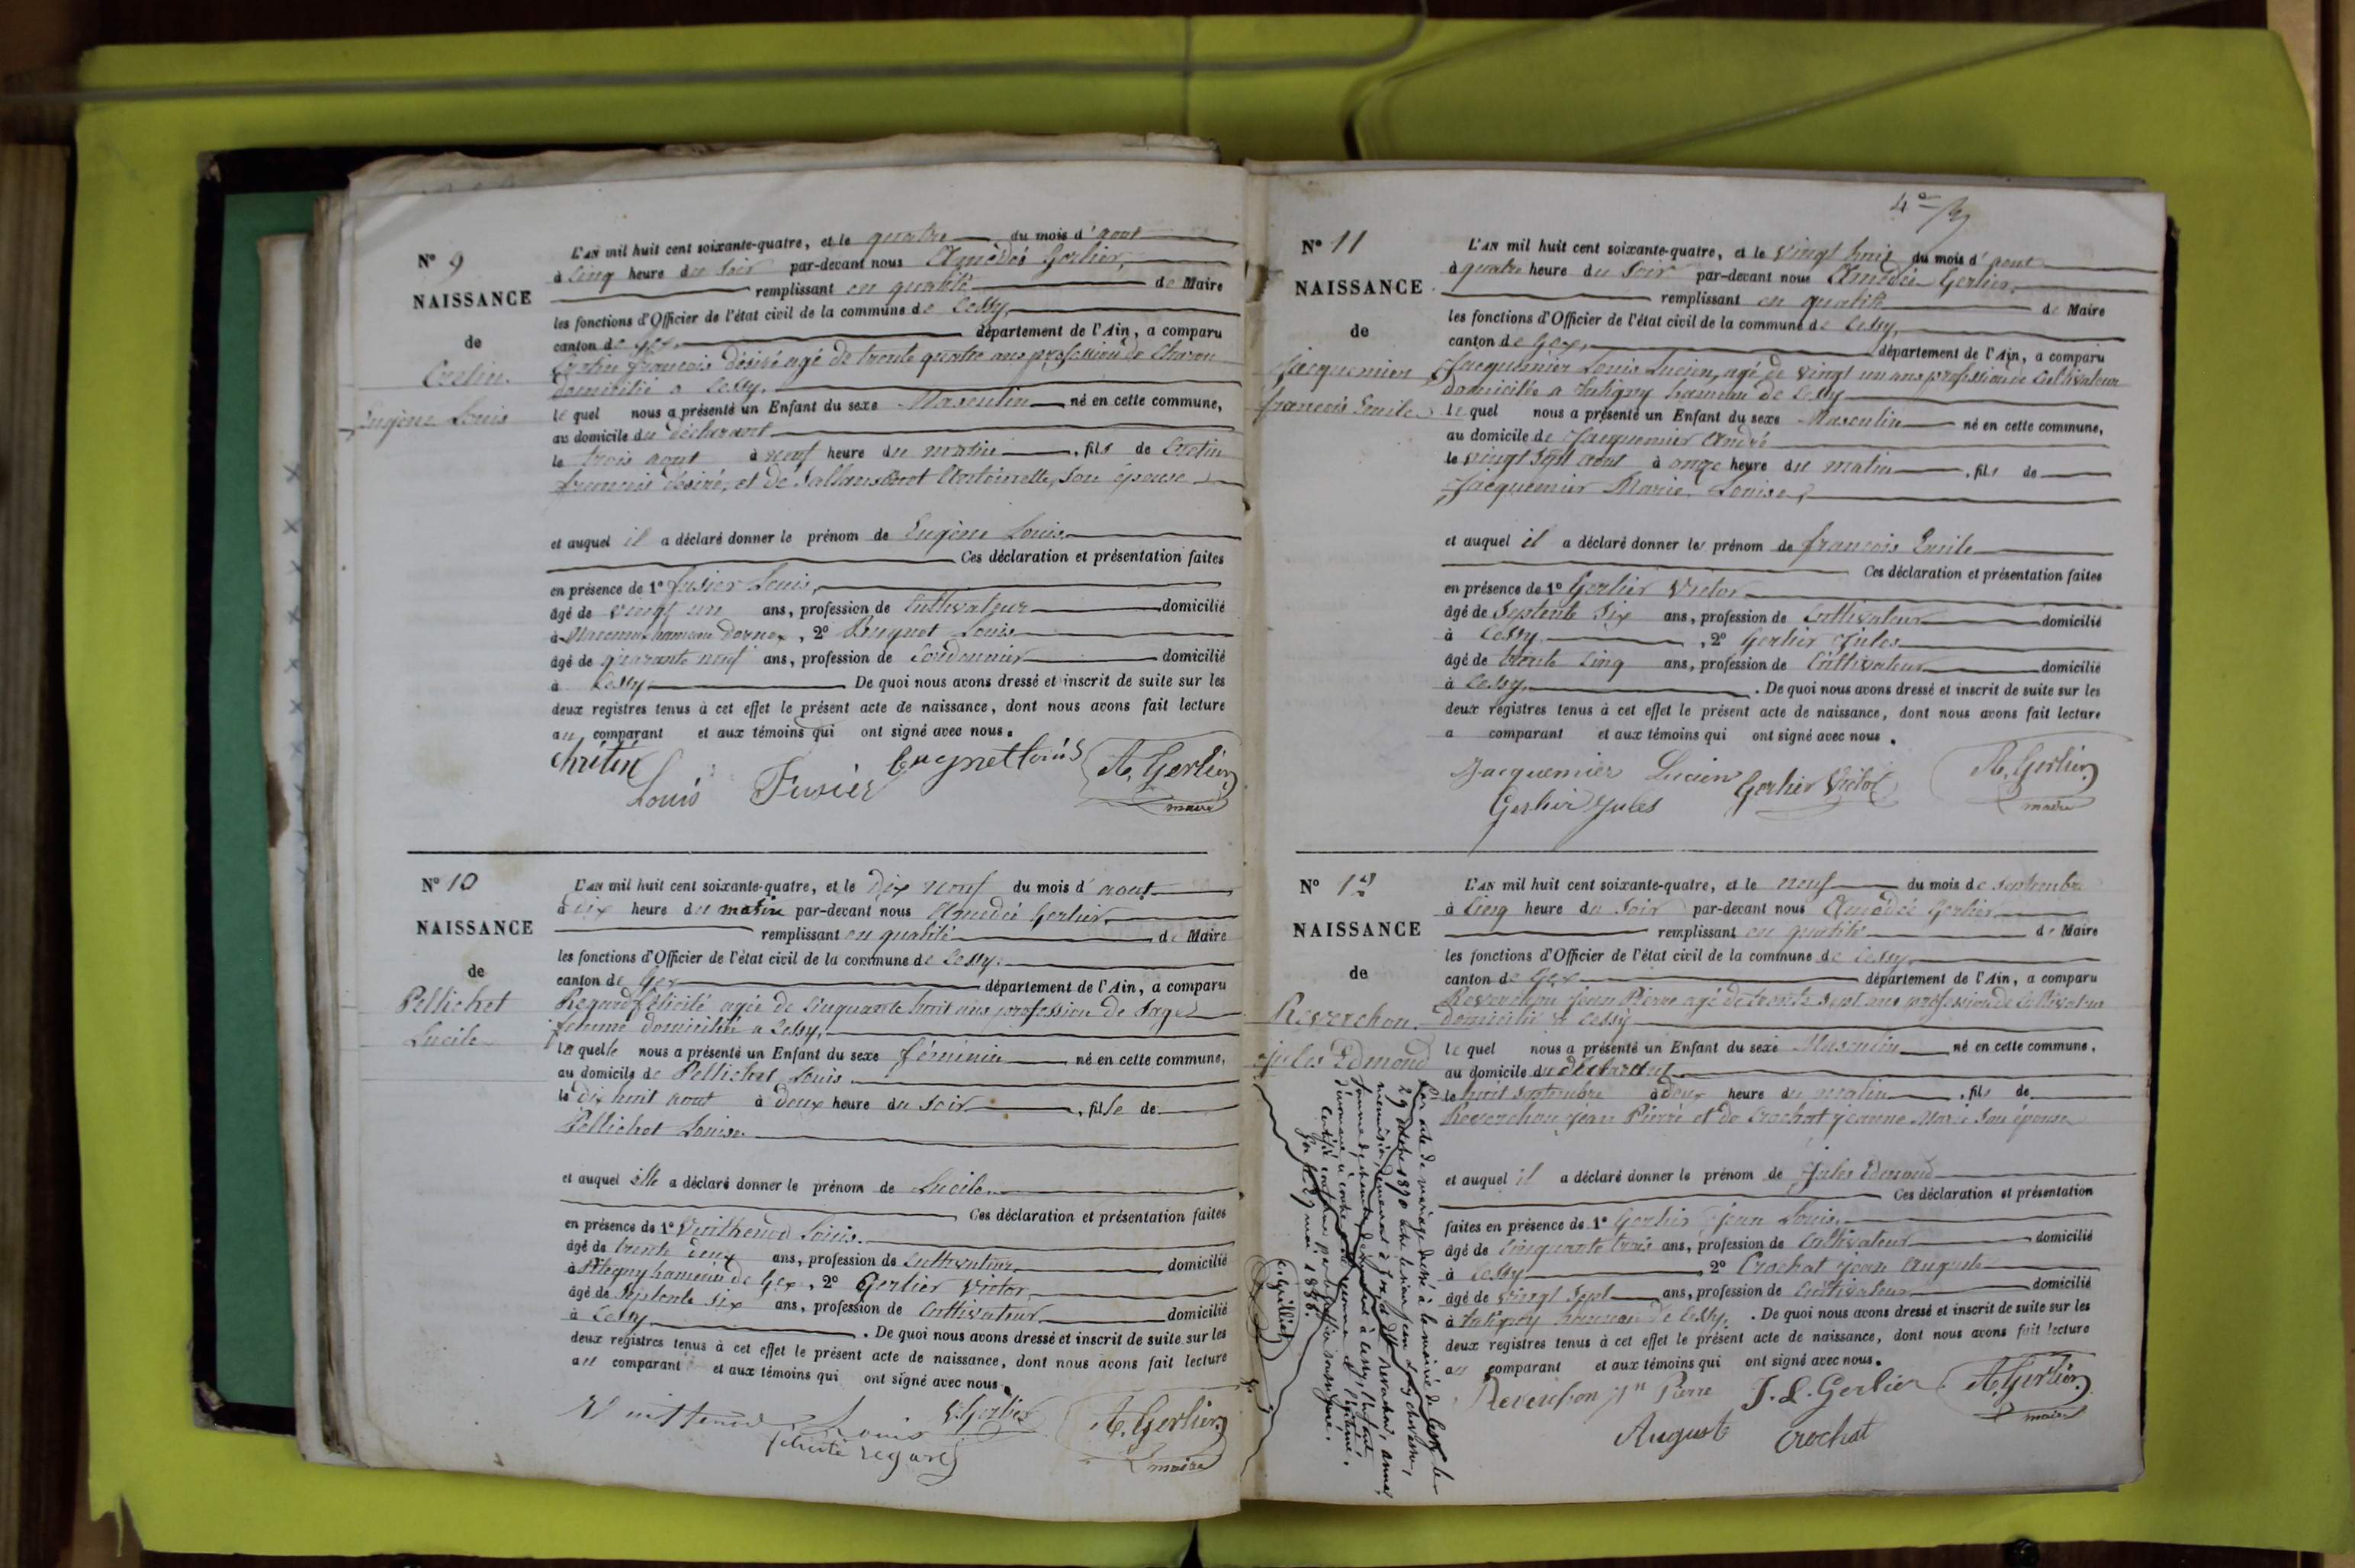 N° 9
NAISSANCE
de
Cretin
Eugène Louis
L'AN mil huit cent soixante-quatre, et le quatre du mois d'aout
à cinq heure du soir par-devant nous Amédée Gerlier,
remplissant en qualité de Maire
les fonctions d'Officier de l'état civil de la commune de Cessy,
canton de Gex, département de l'Ain, a comparu
Cretin françois désiré agé de trente quatre ans profession de Charon
domicilié a Cessy,
lequel nous a présenté un Enfant du sexe Masculin né en cette commune,
au domicile du déclarant
le trois aout à neuf heure du matin, fils de Cretin
françois désiré, et de Antoinette, son épouse
et auquel il a déclaré donner le prénom de Eugène Louis
Ces déclaration et présentation faites
en présence de 1° fusier Louis,
âgé de vingt un ans, profession de Cultivateur domicilié
à hameau dornex, 2° Bugnet Louis
âgé de quarante neuf ans, profession de Cordonnier domicilié
à Cessy De quoi nous avons dressé et inscrit de suite sur les
deux registres tenus à cet effet le présent acte de naissance, dont nous avons fait lecture
au comparant et aux témoins qui ont signé avec nous.
chrétin Bugnet Louis A. Gerlier
Louis Fusier maire
N° 10
NAISSANCE
de
Pellichet
Lucile
L'AN mil huit cent soixante-quatre, et le dix neuf du mois d'aout
à dix heure du matin par-devant nous Amédée Gerlier
remplissant en qualité de Maire
les fonctions d'Officier de l'état civil de la commune de Cessy
canton de Gex département de l'Ain, a comparu
Regard félicité agée de Cinquante huit ans profession de Sage
femme domiciliée a Cessy,
laquelle nous a présenté un Enfant du sexe féminin né en cette commune,
au domicile de Pellichet Louis
le dix huit aout à deux heure du soir, fille de
Pellichet Louise
et auquel elle a déclaré donner le prénom de Lucile
Ces déclaration et présentation faites
en présence de 1° Vuithenod Louis.
âgé de trente deux ans, profession de Cultivateur domicilié
à hameau de Gex, 2° Gerlier Victor
âgé de septente six ans, profession de Cultivateur domicilié
à Cessy. De quoi nous avons dressé et inscrit de suite sur les
deux registres tenus à cet effet le présent acte de naissance, dont nous avons fait lecture
au comparant et aux témoins qui ont signé avec nous.
Louis V. Gerlier A. Gerlier
félicité regard maire
N° 11
NAISSANCE
de
Jacquemier
françois Emile
L'AN mil huit cent soixante-quatre, et le vingt huit du mois d'aout
à quatre heure du soir par-devant nous Amédée Gerlier,
remplissant en qualité de Maire
les fonctions d'Officier de l'état civil de la commune de Cessy,
canton de Gex, département de l'Ain, a comparu
Jacquemier Louis Lucien, agé de vingt un ans profession de Cultivateur
domiciliée a Tutigny hameau de Cessy
lequel nous a présenté un Enfant du sexe Masculin né en cette commune,
au domicile de Jacquemier André
le vingt sept aout à onze heure du matin, fils de
Jacquemier Marie Louise,
et auquel il a déclaré donner le prénom de françois Emile
Ces déclaration et présentation faites
en présence de 1° Gerlier Victor
âgé de Septente Six ans, profession de Cultivateur domicilié
à Cessy, 2° Gerlier Jules
âgé de trente cinq ans, profession de Cultivateur domicilié
à Cessy. De quoi nous avons dressé et inscrit de suite sur les
deux registres tenus à cet effet le présent acte de naissance, dont nous avons fait lecture
a comparant et aux témoins qui ont signé avec nous.
Jacquemier Lucien Gerlier Victor A. Gerlier
Gerlier Jules maire
N° 12
NAISSANCE
de
Reverchon
Jules Edmond
L'AN mil huit cent soixante-quatre, et le neuf du mois de Septembre
à cinq heure du soir par-devant nous Amédée Gerlier
remplissant en qualité de Maire
les fonctions d'Officier de l'état civil de la commune de Cessy,
canton de Gex département de l'Ain, a comparu
Reverchon jean Pierre agé de trente sept ans profession de Cultivateur
domicilié a Cessy
lequel nous a présenté un Enfant du sexe Masculin né en cette commune,
au domicile du déclarant
le huit septembre à deux heure du matin, fils de
Reverchon jean Pierre et de Crochat jeanne Marie son épouse
et auquel il a déclaré donner le prénom de Jules Edmond
Ces déclaration et présentation
faites en présence de 1° Gerlier jean Louis,
âgé de Cinquante trois ans, profession de Cultivateur domicilié
à Cessy 2° Crochat jean Auguste
âgé de vingt sept ans, profession de Cultivateur domicilié
à Tutigny hameau de Cessy. De quoi nous avons dressé et inscrit de suite sur les
deux registres tenus à cet effet le présent acte de naissance, dont nous avons fait lecture
au comparant et aux témoins qui ont signé avec nous.
Reverchon Jn Pierre J. L. Gerlier A. Gerlier
Auguste Crochat maire
Par acte de mariage dressé à la mairie de Cessy le